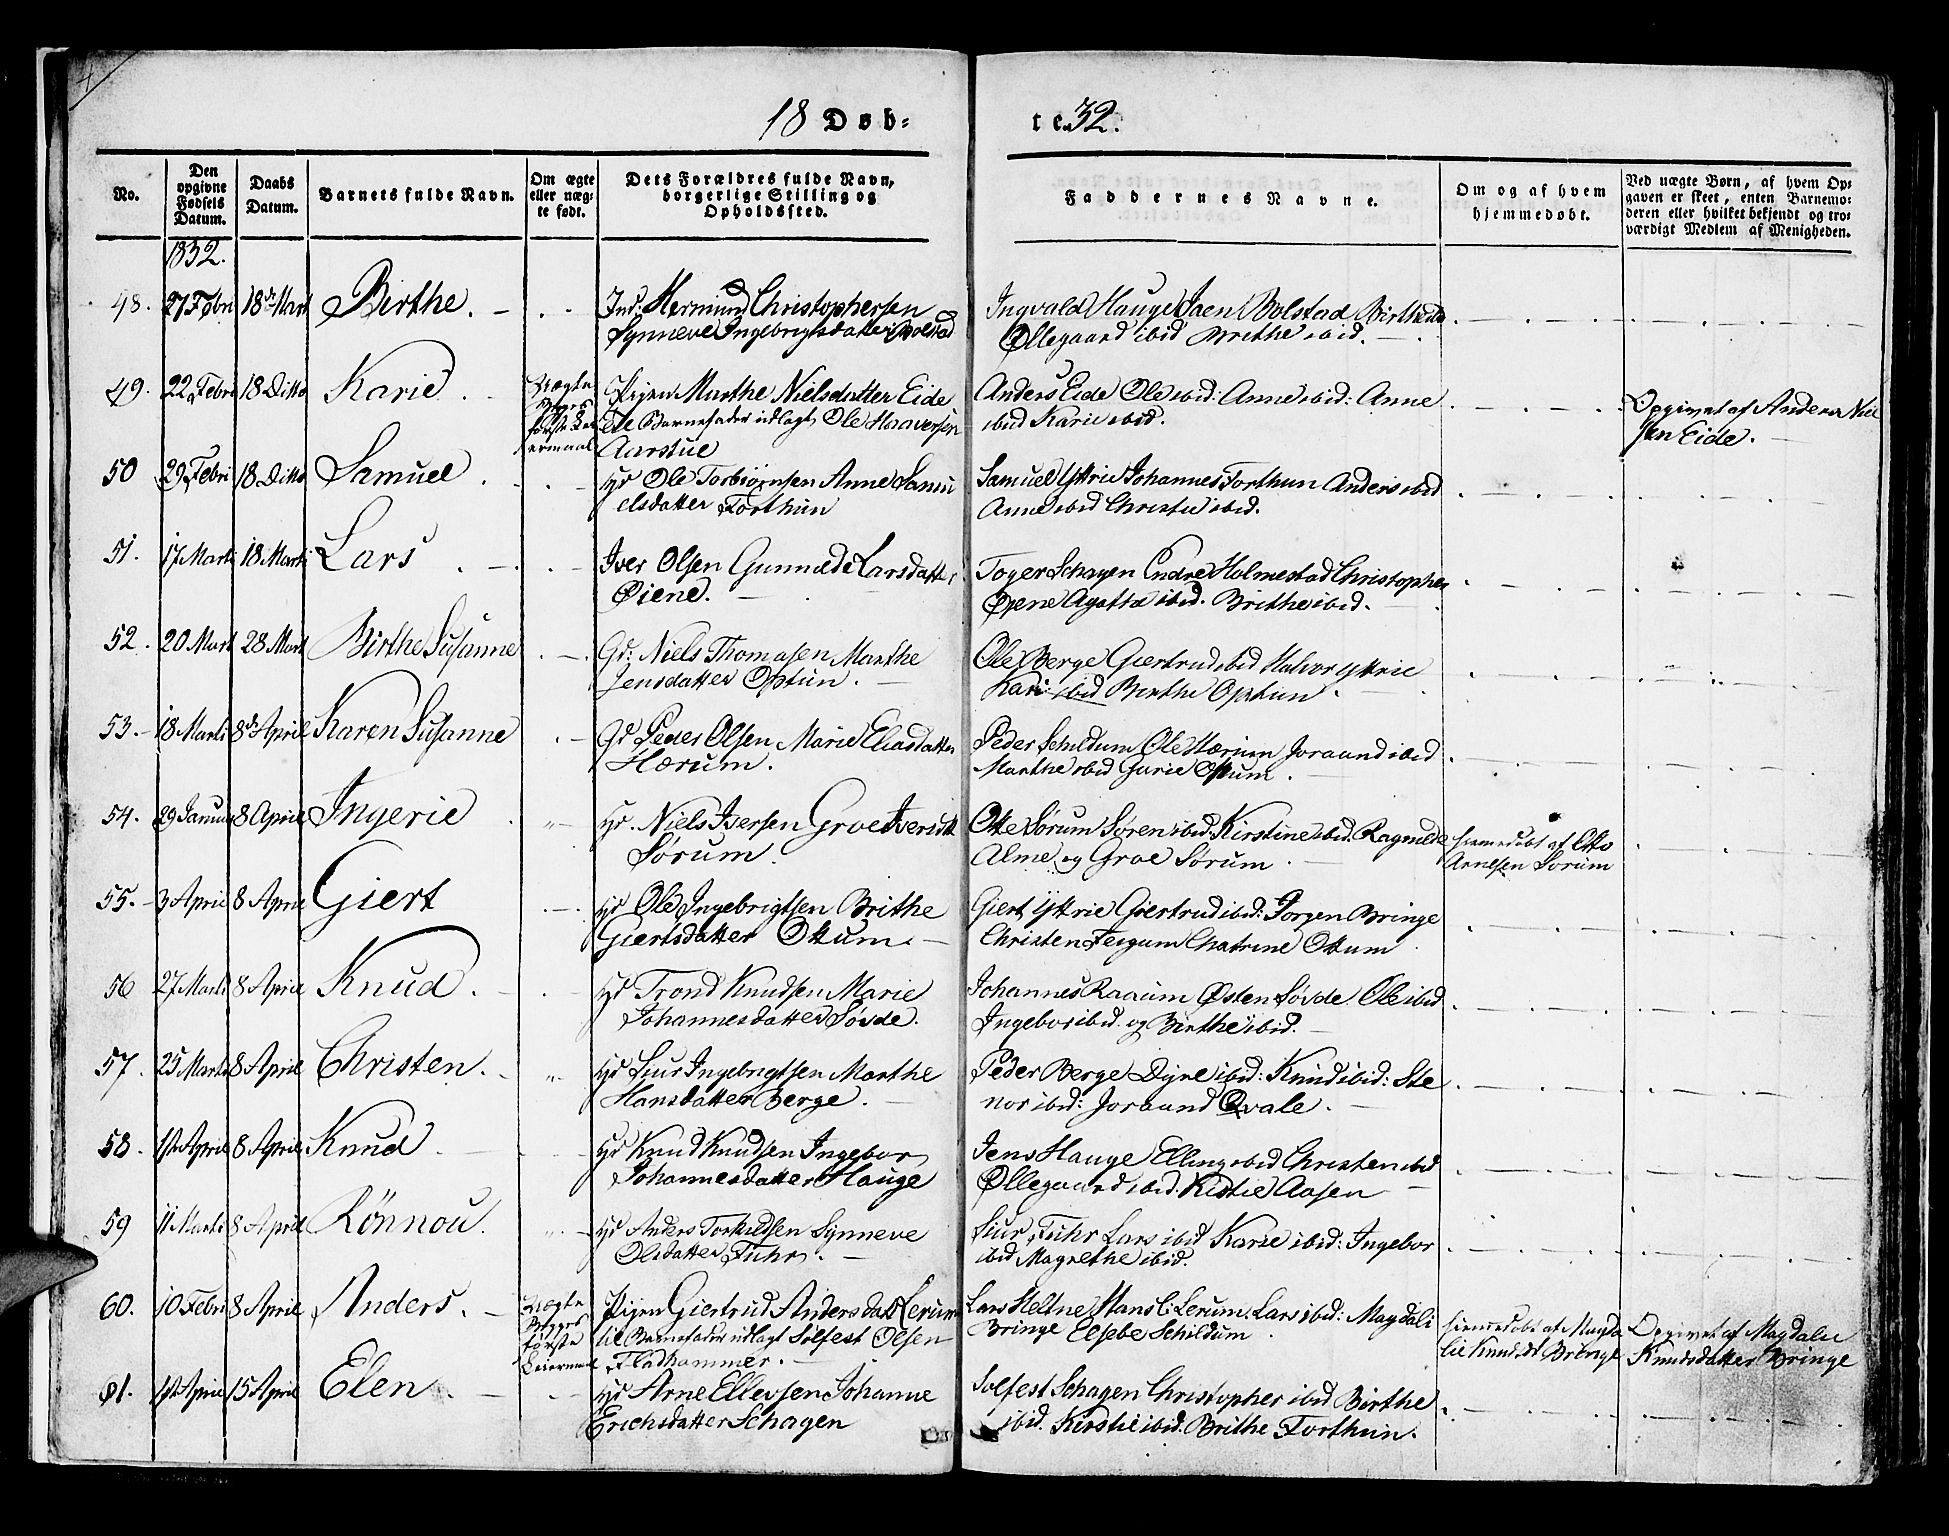 18 Døb-
te 32.
No.
Den opgivne Fødsels Datum.
Daabs Datum.
Barnets fulde Navn.
Om ægte eller uægte født.
Dets Forældres fulde Navn, borgerlige Stilling og Opholdssted.
Faddernes Navne.
Om og af hvem hjemmedøbt.
Ved uægte Børn, af hvem Opgaven er skeet, enten Barnemoderen eller hvilket bekjendt og troværdigt Medlem af Menigheden.
1832.
48. 27 Febri 18de Mart Birthe. Ind: Hermund Christophersen
Synneve Ingebrigtsdatter Bolstad
Ingvald Hauge Joen Bolstad Birthe ibid
Øllegaard ibid Brithe ibid.
49. 22 Febri 18 Ditto Karie. Uægte Pigen Marthe Nielsdatter Eide
første Leiermaal Barnefader udlagt Ole Haaversen
Aarstue
Anders Eide Ole ibid: Anne ibid: Anne
ibid Karie ibid.
Opgivet af Anders Nielsen Eide.
50 29 Febri 18 Ditto Samuel. Ole Torbiørnsen Anne Samu
elsdatter Forthun
Samuel Yttrie Johannes Forthun Anders ibid
Anne ibid Christie ibid.
51. 17 Marti 18 Marti Lars. Iver Olsen Gunnilde Larsdatter
Øiene.
Toger Schagen Endre Holmestad Christopher
Øyene Agatha ibid. Brithe ibid.
52. 20 Mart 28 Mart Birthe Susanne Gd: Niels Thomasen Marthe
Jensdatter Optun.
Ole Berge Giertrud ibid Halvor Yttrie
Kari ibid Birthe Optun.
53. 18 Marti 8de April Karen Susanne Gd Peder Olsen Marie Eliasdatter
Hærum.
Peder Schildum Ole Hærum Joraand ibid
Marthe ibid Gurie Ottum.
54. 29 Januar 8 April Ingerie Niels Iversen Groe Iversdtt
Sørum.
Otte Sørum Søren ibid: Kirstine ibid: Ragnilde
Alme og Groe Sørum.
hiemedøbt af Otto
Arnesen Sorum
55. 3 April 8 April Giert Ole Ingebrigtsen Brithe
Giertsdatter Ottum.
Giert Yttrie Giertrud ibid: Jørgen Bringe
Christen Feigum Chatrine Ottum
56 27 Marti 8 April Knud. Trond Knudsen Marie
Johannesdatter Søvde.
Johannes Raaum Østen Søvde Ole ibid
Ingebor ibid. og Birthe ibid.
57. 25 Marti 8 April Christen. Siur Ingebrigtsen Marthe
Hansdatter Berge.
Peder Berge Dyre ibid: Knud ibid: Ste
nor ibid: Joraand Qvale.
58. 1st April 8 April Knud Knud Knudsen Ingebor
Johannesdatter Hauge
Jens Hauge Elling ibid Christen ibid
Øllegaard ibid. Kistie Aasen
59 11 Marti 8 April Rönnou. Anders Torkildsen Synneve
Olsdatter Fuhr.
Siur Fuhr Lars ibid Karie ibid: Ingebor
ibid Magrethe ibid.
60. 10 Febri 8 April Anders. Uægte Begges første Leiermaal Pigen Giertrud Andersdatt Lerum
til Barnefader udlagt Solfest Olsen
Fladhammer.
Lars Heltne Hans L: Lerum Lars ibid: Magdali
Bringe Elsebe Schildum
hiemedøbt af Magda
lie Knudsdt Bringe
Opgivet af Magdalie
Knudsdatter Bringe
61. 1st April 15 April Elen. Arne Ellevsen Johanne
Erichsdatter Schagen
Solfest Schagen Christopher ibid Birthe
ibid. Kirstie ibid. Brithe Forthun.